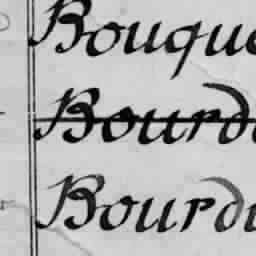 Bouque
Bourd
Bourdu